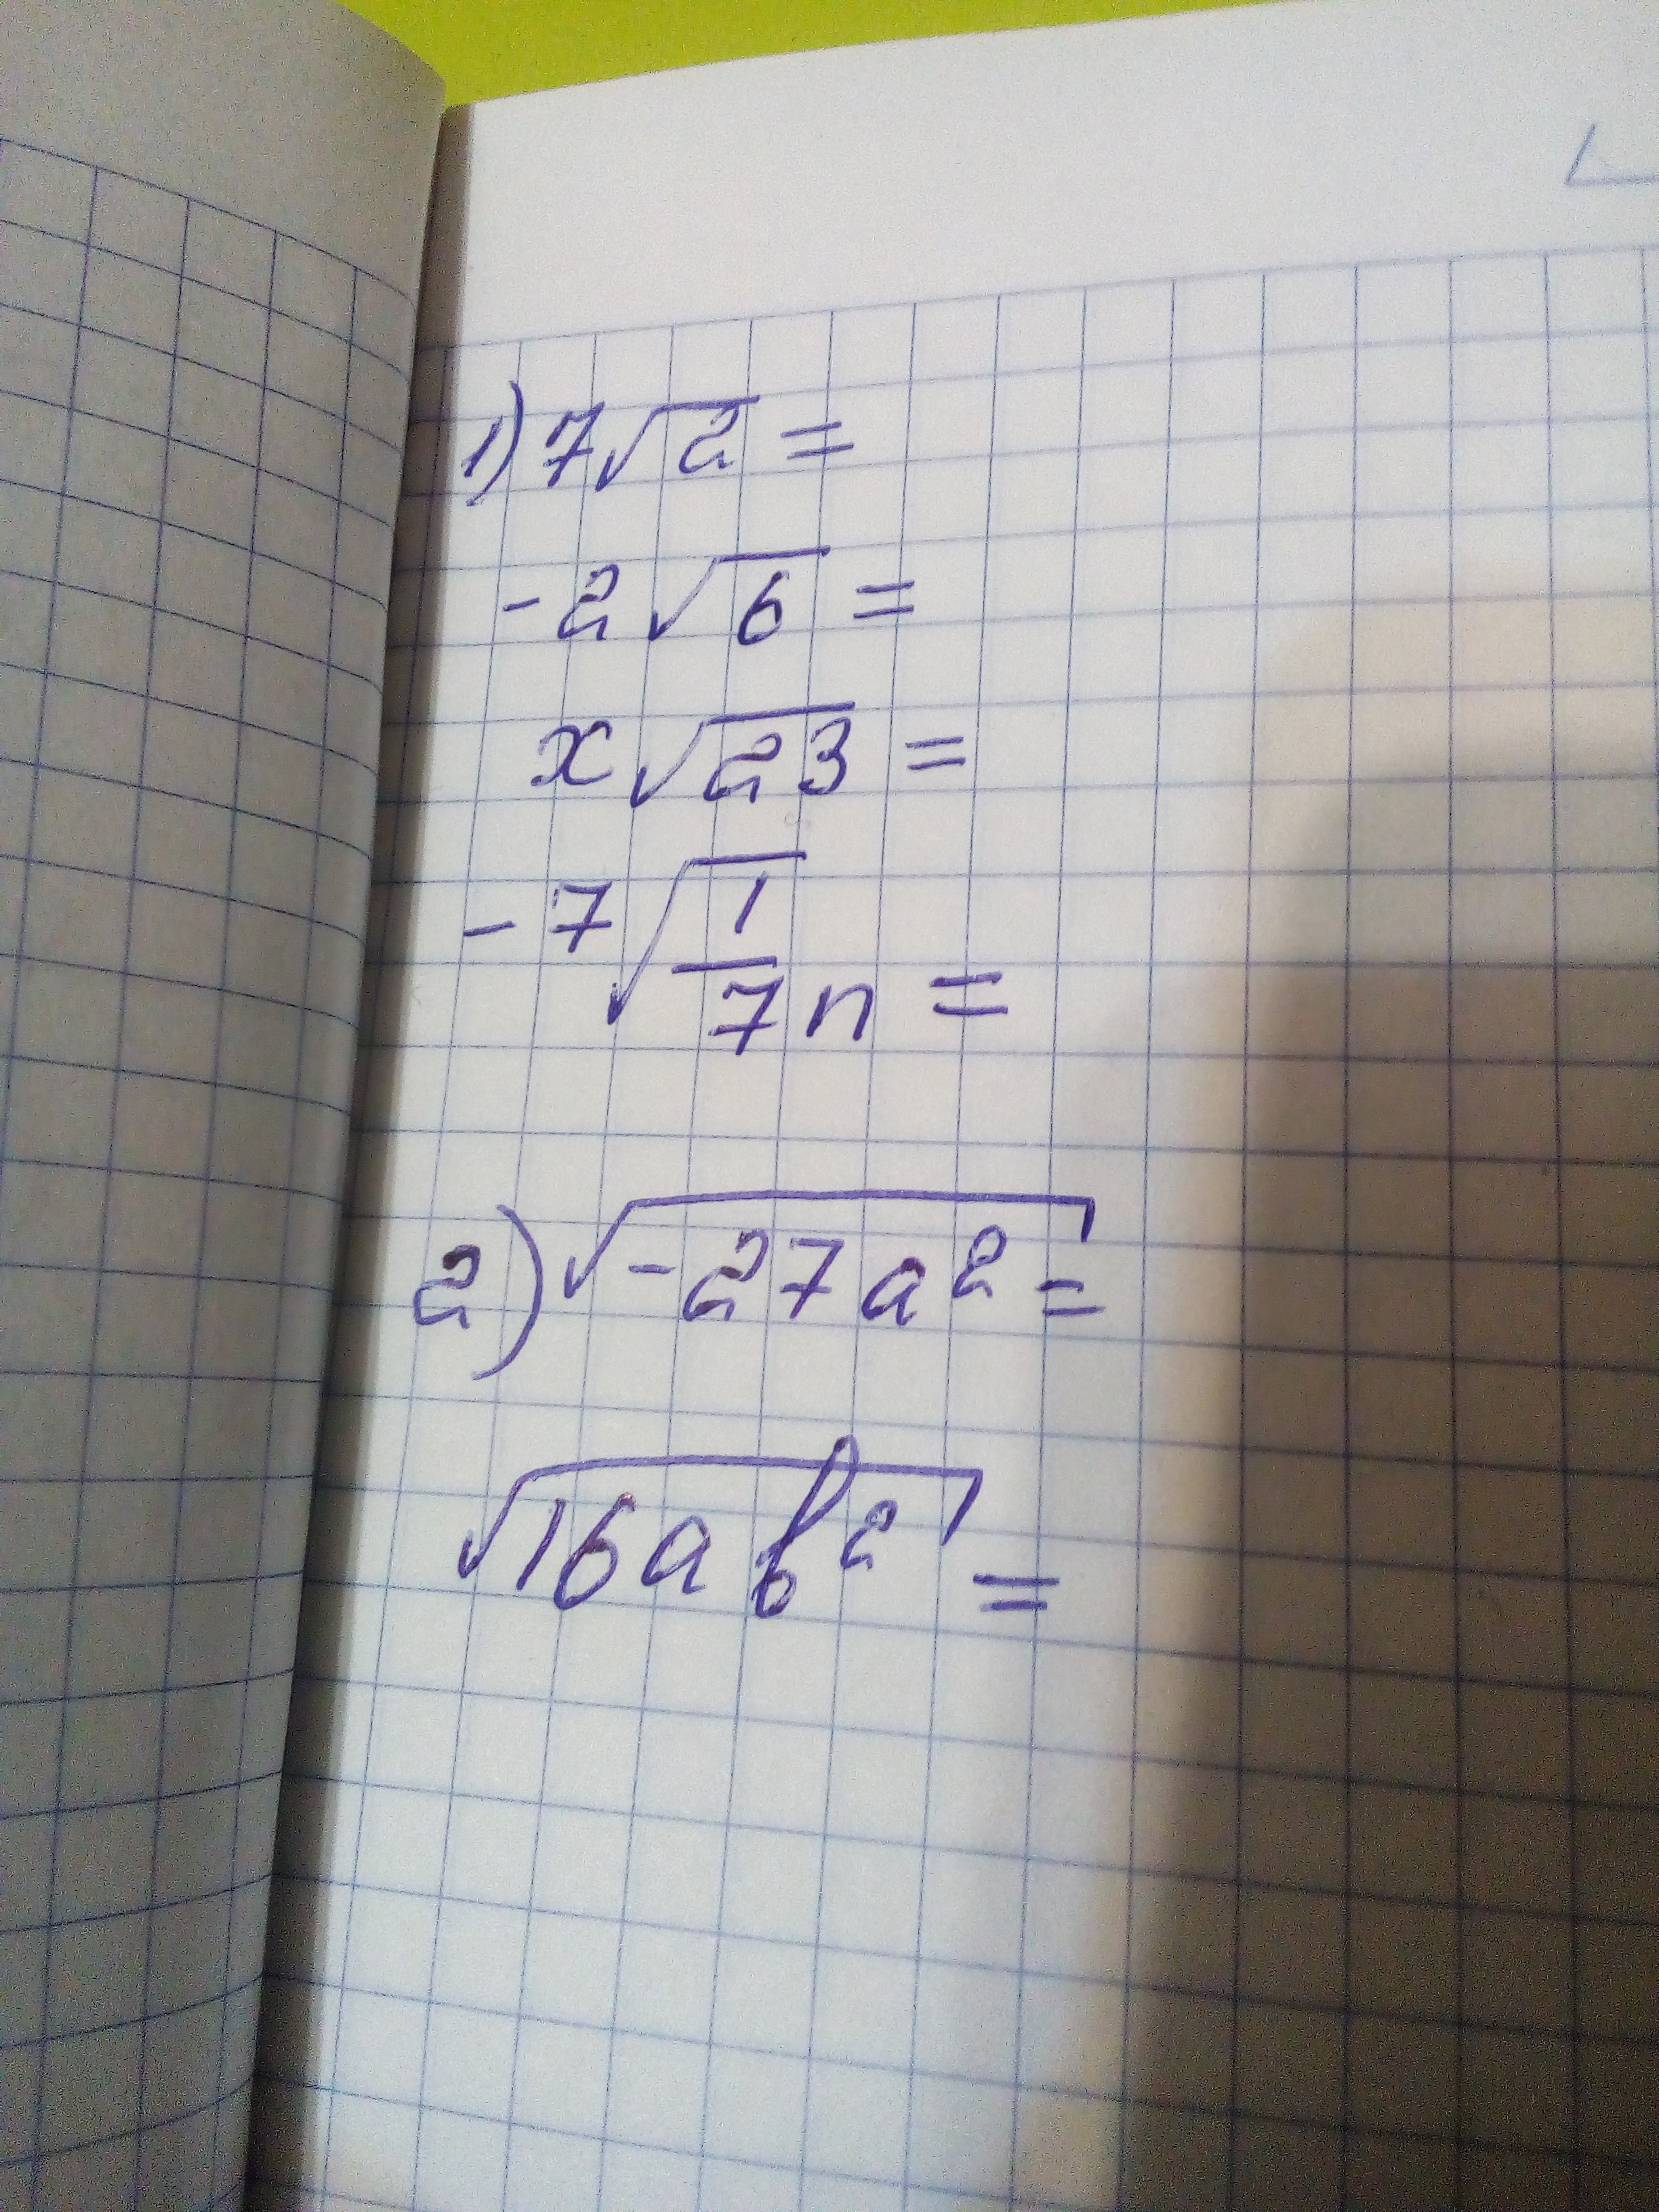 1) 7√2 =
-2√6 =
x√23 =
-7√1/7n =
2) √-27a² =
√16ab² =